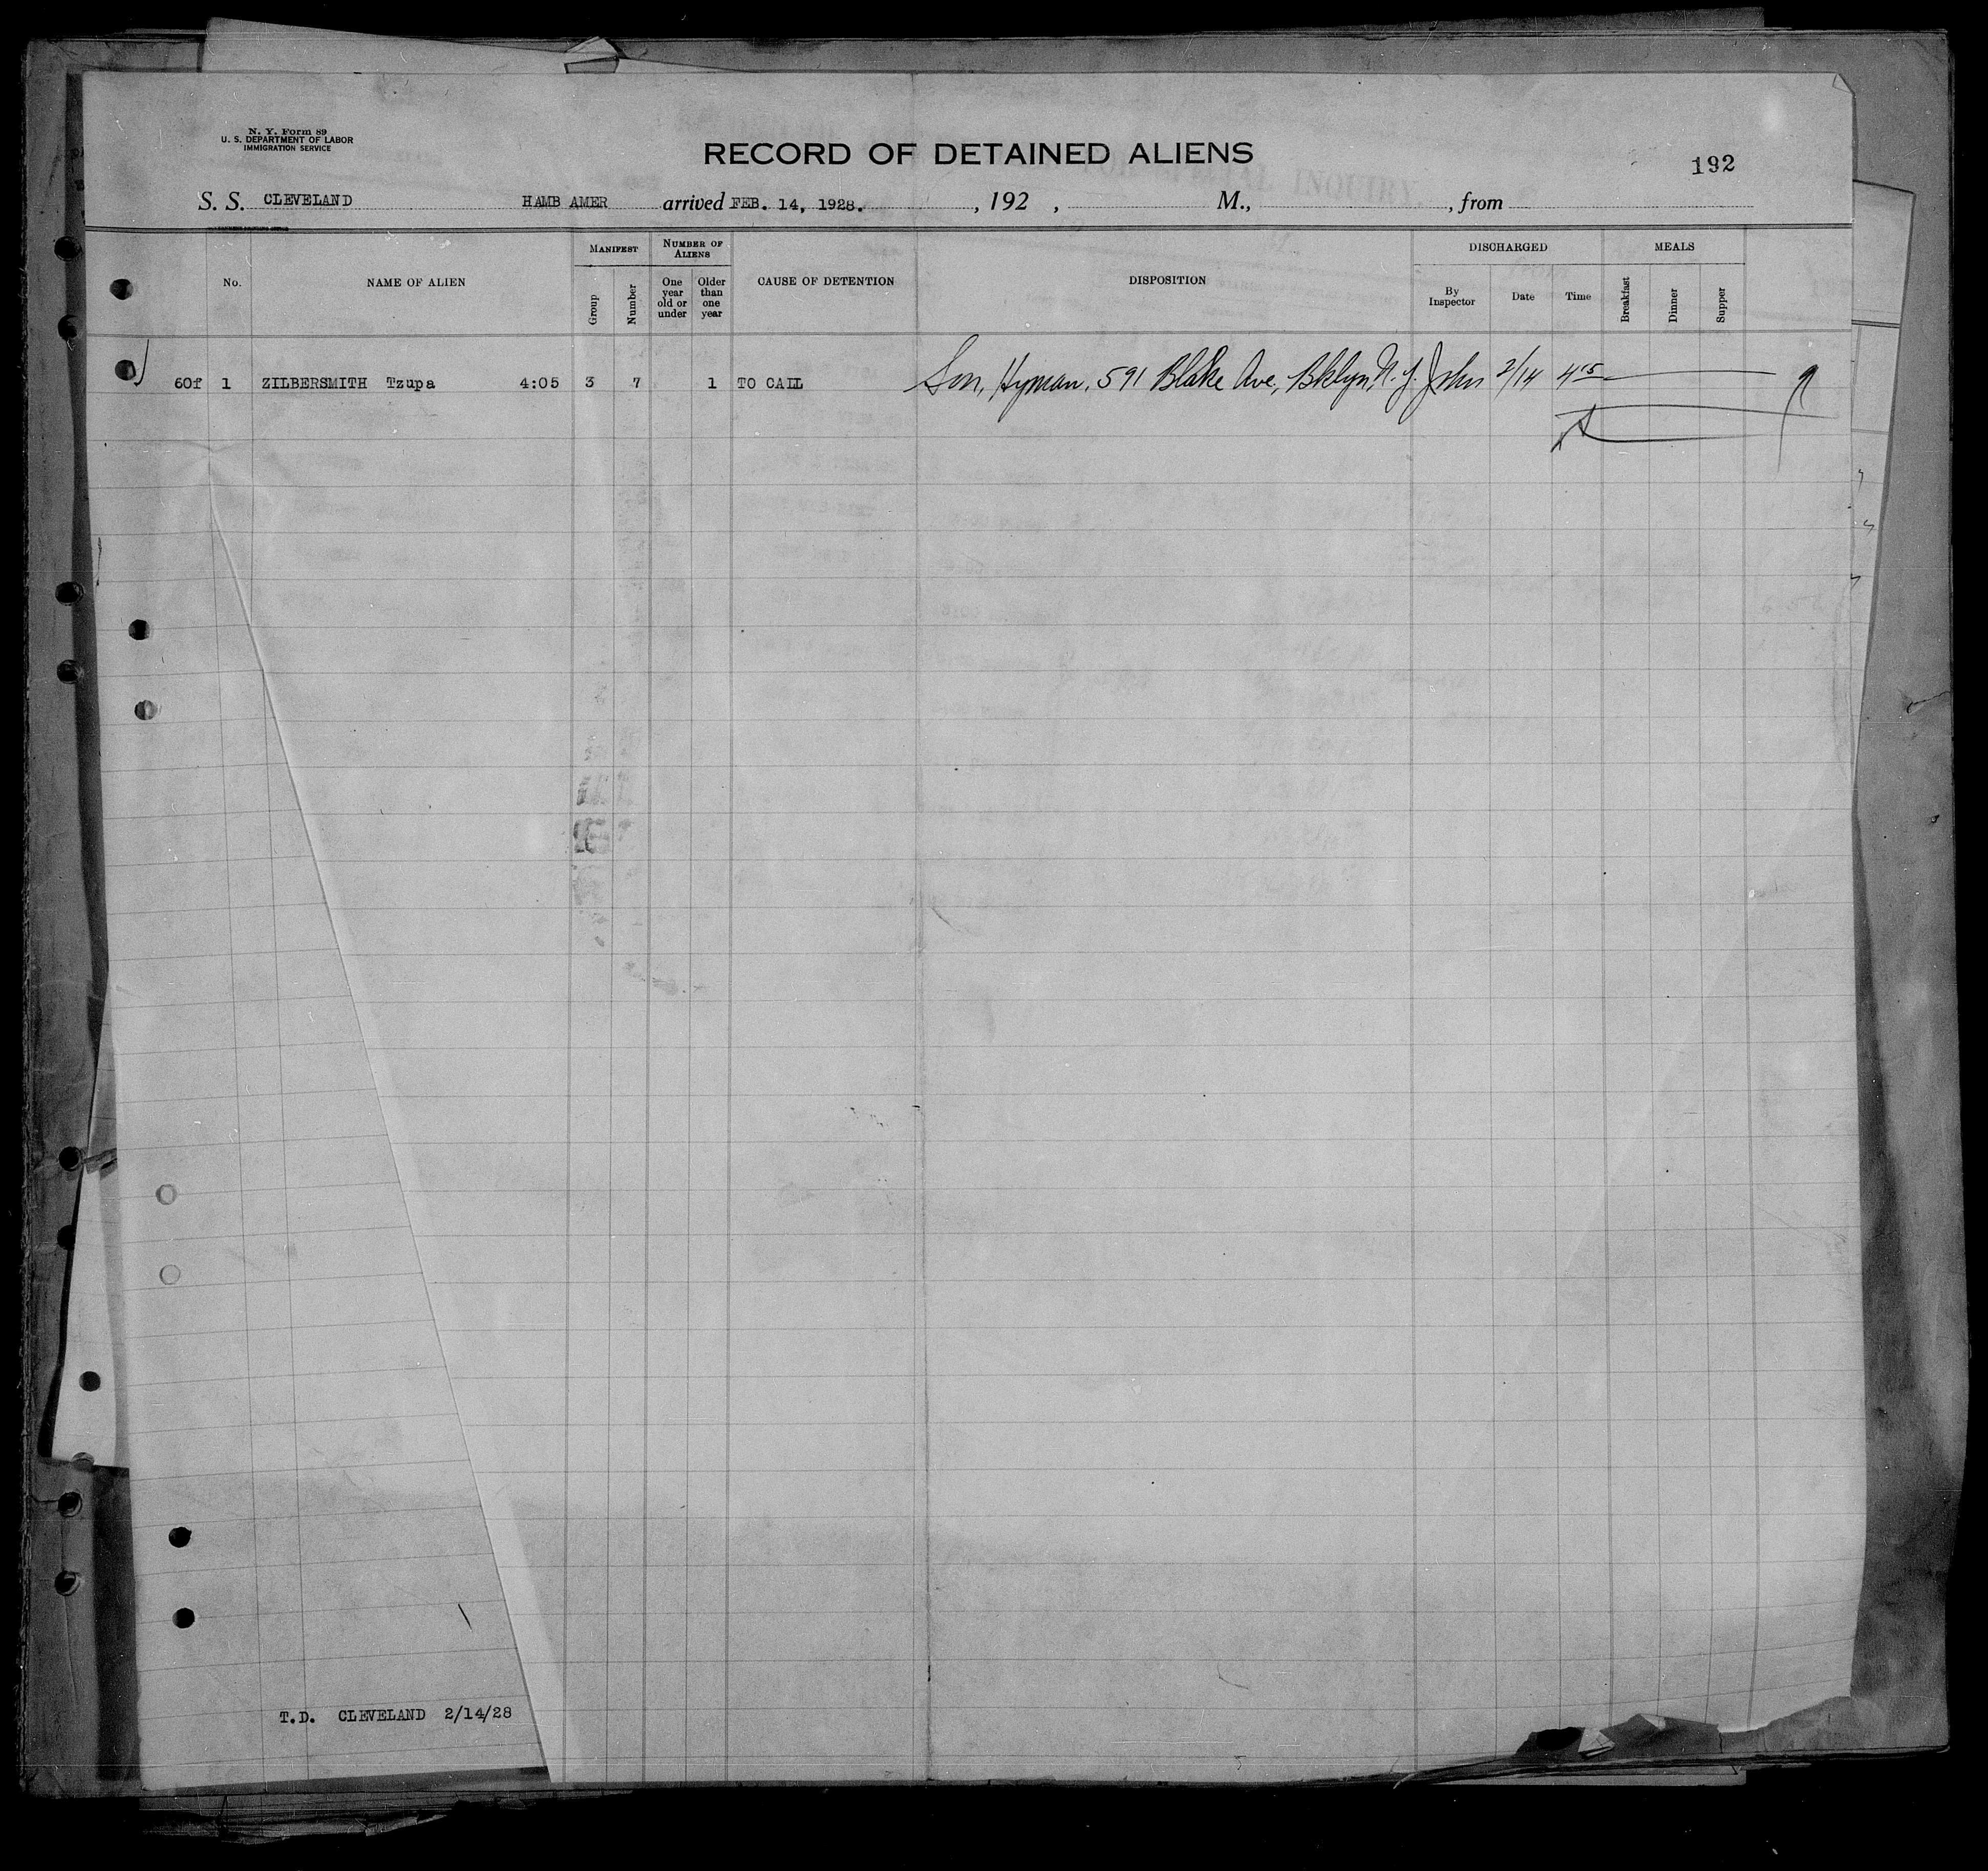 N. Y. Form 89
U. S. DEPARTMENT OF LABOR
IMMIGRATION SERVICE
RECORD OF DETAINED ALIENS
192
S. S. CLEVELAND HAMB AMER arrived FEB. 14, 1928. , 192 , M., , from
No. NAME OF ALIEN MANIFEST Group Number NUMBER OF ALIENS One year old or under Older than one year CAUSE OF DETENTION DISPOSITION DISCHARGED By Inspector Date Time MEALS Breakfast Dinner Supper
60f 1 ZILBERSMITH Tzupa 4:05 3 7 1 TO CALL Son, Hyman, 591 Blake Ave., Bklyn, N. Y. John 2/14 4 15
T.D. CLEVELAND 2/14/28